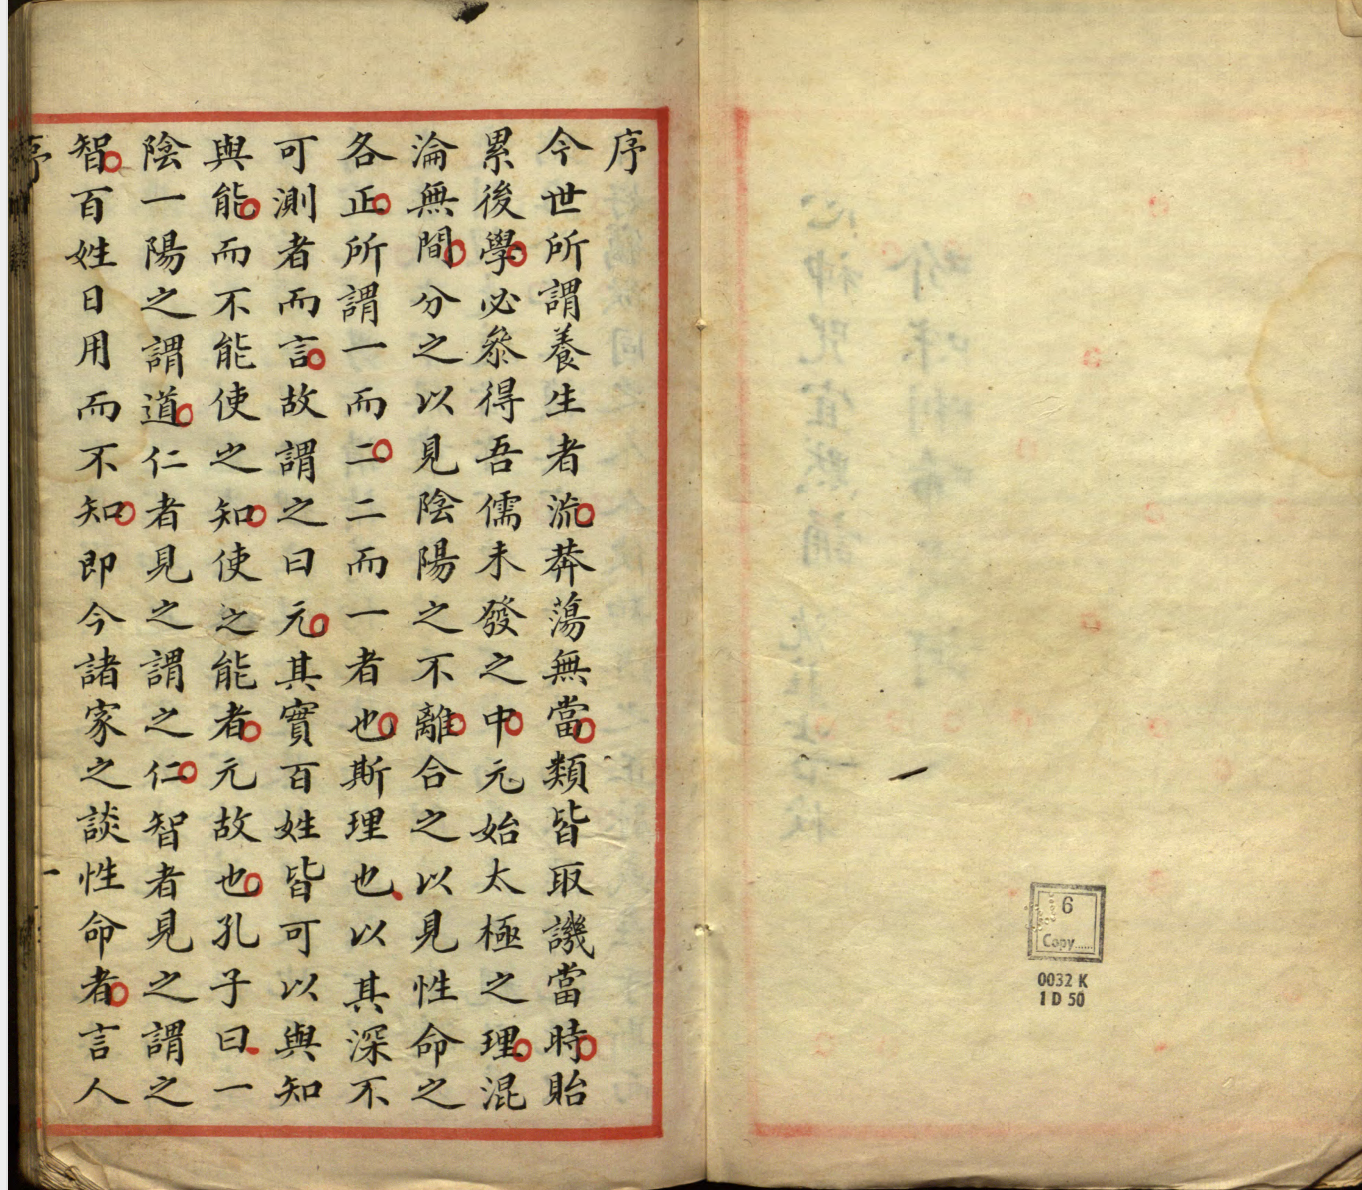 序
今世所謂養生者流莽蕩無當類皆取譏當時貽
累後學必叅得吾儒未發之中元始太極之理混
淪無間分之以見陰陽之不離合之以見性命之
各正所謂一而二二而一者也斯理也以其深不
可測者而言故謂之曰元其實百姓皆可以與知
與能而不能使之知使之能者元故也孔子曰一
陰一陽之謂道仁者見之謂之仁智者見之謂之
智百姓日用而不知即今諸家之談性命者言人
序
一
6
Copy......
0032 K
1 D 50